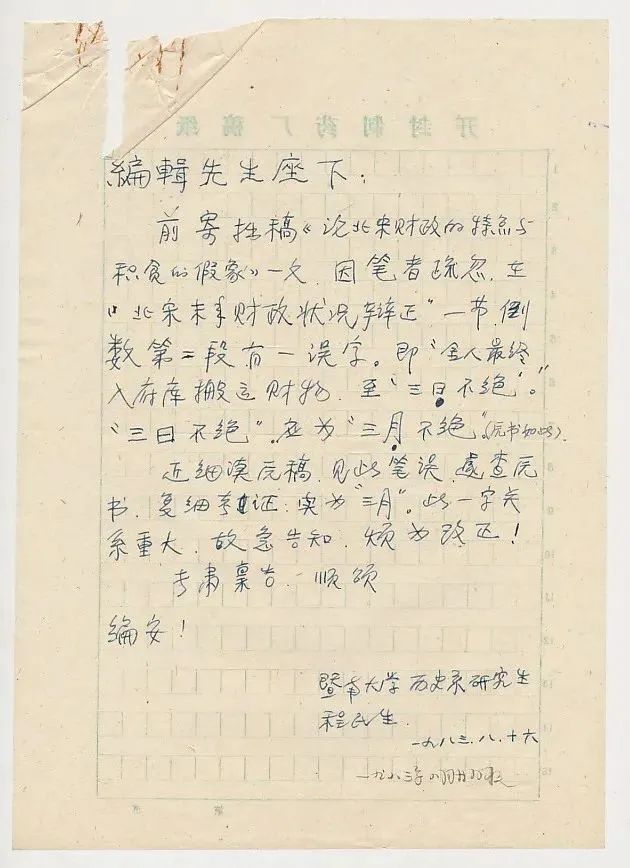 开封制药厂稿纸
编辑先生座下：
前寄拙稿《论北宋财政的特点与
积贫的假象》一文，因笔者疏忽，在
“北宋末年财政状况辩正”一节，倒
数第二段有一误字。即“金人最终
入府库搬运财物，至‘三日不绝’。”
“三日不绝”应为“三月不绝”。(原书如此).
近细读原稿，见此笔误，遂查原
书，复细考证，实为“三月”。此一字关
系重大，故急告知，烦为改正！
专肃禀告．顺颂
编安！
暨南大学历史系研究生
程民生．
一九八三.八.十六
一九八三年